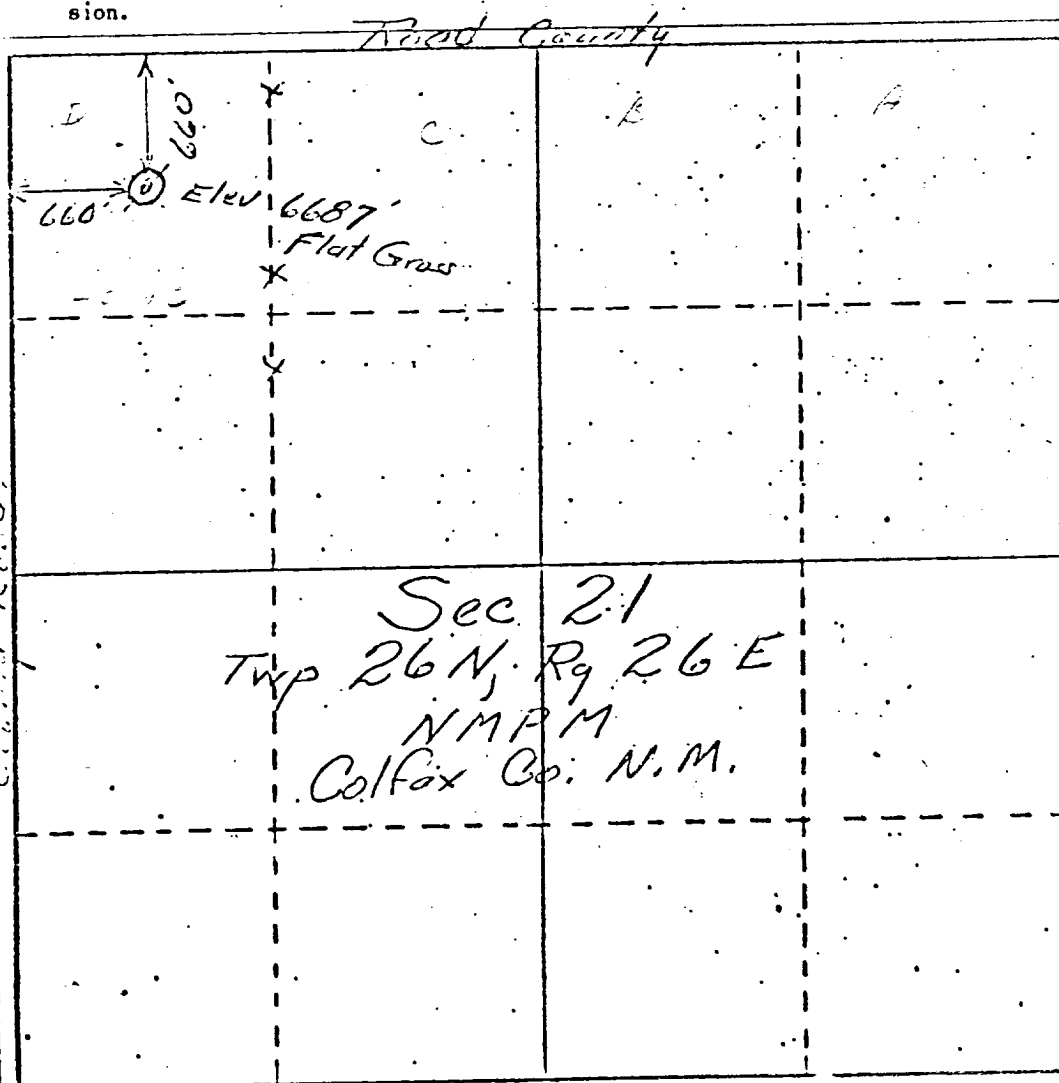 sion.
Road County
D C B A
660'
660' Elev 6687'
Flat Grass
Sec 21
Twp 26 N, Rg 26 E
NMPM
Colfax Co. N.M.